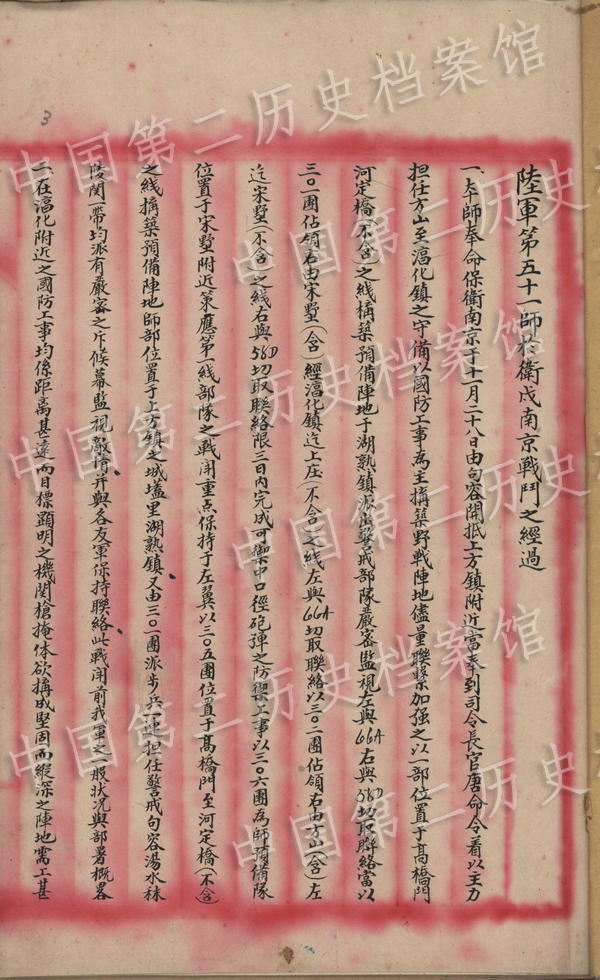 陸軍第五十一師於衛戍南京戰鬥之經過
一、本師奉命保衛南京于十一月二十八日由句容開抵上方鎮附近當奉到司令長官唐命令着以主力
担任方山至淳化鎮之守備以國防工事為主構築野戰陣地儘量聯繫加强之以一部位置于高橋門
河定橋(不含)之线構築預備陣地于湖熟鎮派出警戒部隊嚴密監視左與66A右與58D切取聯絡當以
三〇一團佔領右由宋墅(含)經淳化鎮迄上庄(不含)之线左與66A切取聯絡以三〇二團佔領右由方山(含)左
迄宋墅(不含)之线右與58D切取聯絡限三日內完成可禦中口徑砲彈之防禦工事以三〇六團為師預備隊
位置于宋墅附近策應第一線部隊之戰鬥重点保持于左翼以三〇五團位置于高橋門至河定橋(不含)
之线構築預備陣地師部位置于上方鎮之城墟里湖熟鎮、又由三〇一團派步兵一連担任警戒句容湯水秣
陵関一帶均派有嚴密之斥候幕監視敵情、并與各友軍保持聯絡、此戰鬥前我軍之一般狀况與部署概畧
二、在淳化附近之國防工事均係距离甚遠而目標顕明之機関槍掩体欲構成堅固而縱深之陣地需工甚
3
中国第二历史档案馆